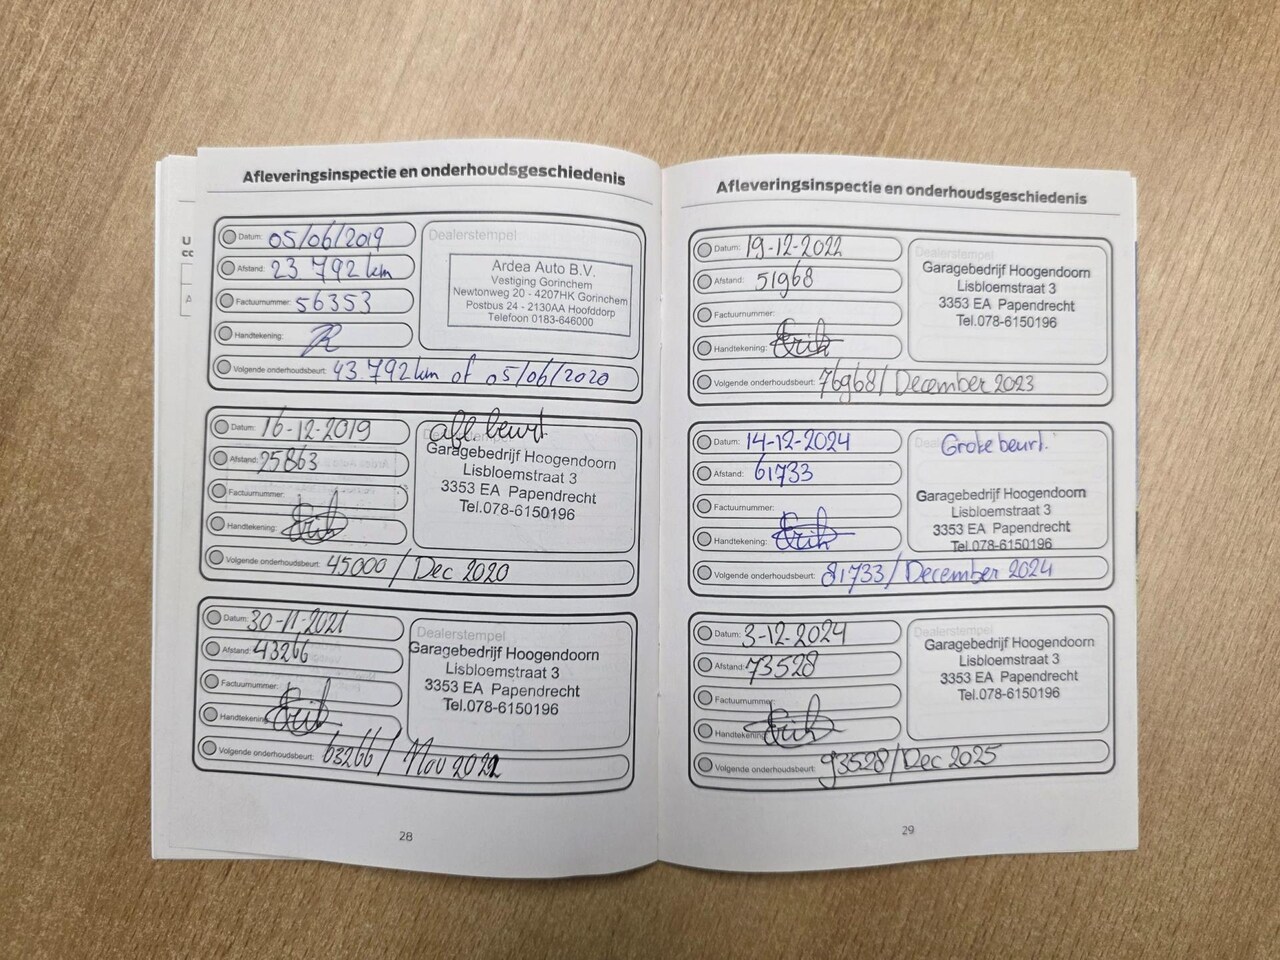 Afleveringsinspectie en onderhoudsgeschiedenis
Datum: 05/06/2019
Afstand: 23 792 km
Factuurnummer: 56353
Handtekening:
Volgende onderhoudsbeurt: 43.792 km of 05/06/2020
Dealerstempel
Ardea Auto B.V.
Vestiging Gorinchem
Newtonweg 20 - 4207HK Gorinchem
Postbus 24 - 2130AA Hoofddorp
Telefoon 0183-646000
Datum: 16-12-2019
Afstand: 25863
Factuurnummer:
Handtekening:
Volgende onderhoudsbeurt: 45000 / Dec 2020
beurt
Garagebedrijf Hoogendoorn
Lisbloemstraat 3
3353 EA Papendrecht
Tel.078-6150196
Datum: 30-11-2021
Afstand: 43266
Factuurnummer:
Handtekening
Volgende onderhoudsbeurt: 63266 / Nov 2022
Dealerstempel
Garagebedrijf Hoogendoorn
Lisbloemstraat 3
3353 EA Papendrecht
Tel.078-6150196
28
Afleveringsinspectie en onderhoudsgeschiedenis
Datum: 19-12-2022
Afstand: 51968
Factuurnummer:
Handtekening:
Volgende onderhoudsbeurt: 76968 / December 2023
Dealerstempel
Garagebedrijf Hoogendoorn
Lisbloemstraat 3
3353 EA Papendrecht
Tel.078-6150196
Datum: 14-12-2024
Afstand: 61733
Factuurnummer:
Handtekening:
Volgende onderhoudsbeurt: 81733 / December 2024
Grote beurt.
Garagebedrijf Hoogendoorn
Lisbloemstraat 3
3353 EA Papendrecht
Tel.078-6150196
Datum: 3-12-2024
Afstand: 73528
Factuurnummer:
Handtekening
Volgende onderhoudsbeurt: 93528 / Dec 2025
Dealerstempel
Garagebedrijf Hoogendoorn
Lisbloemstraat 3
3353 EA Papendrecht
Tel.078-6150196
29